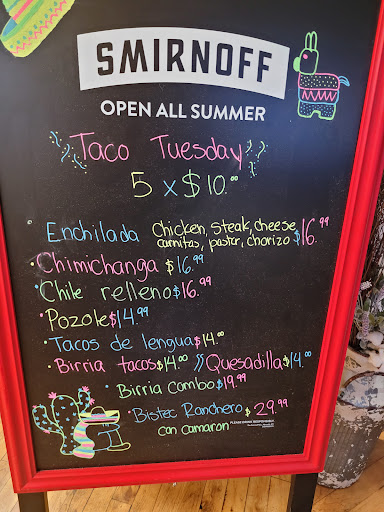 SMIRNOFF
OPEN ALL SUMMER
Taco Tuesday
5 x $10.00
Enchilada Chicken, Steak, cheese
carnitas, pastor, chorizo $16.99
Chimichanga $16.99
Chile relleno $16.99
Pozole $14.99
Tacos de lengua $14.00
Birria tacos $14.00 // Quesadilla $14.00
Birria Combo $19.99
Bistec Ranchero $29.99
con camaron PLEASE DRINK RESPONSIBLY